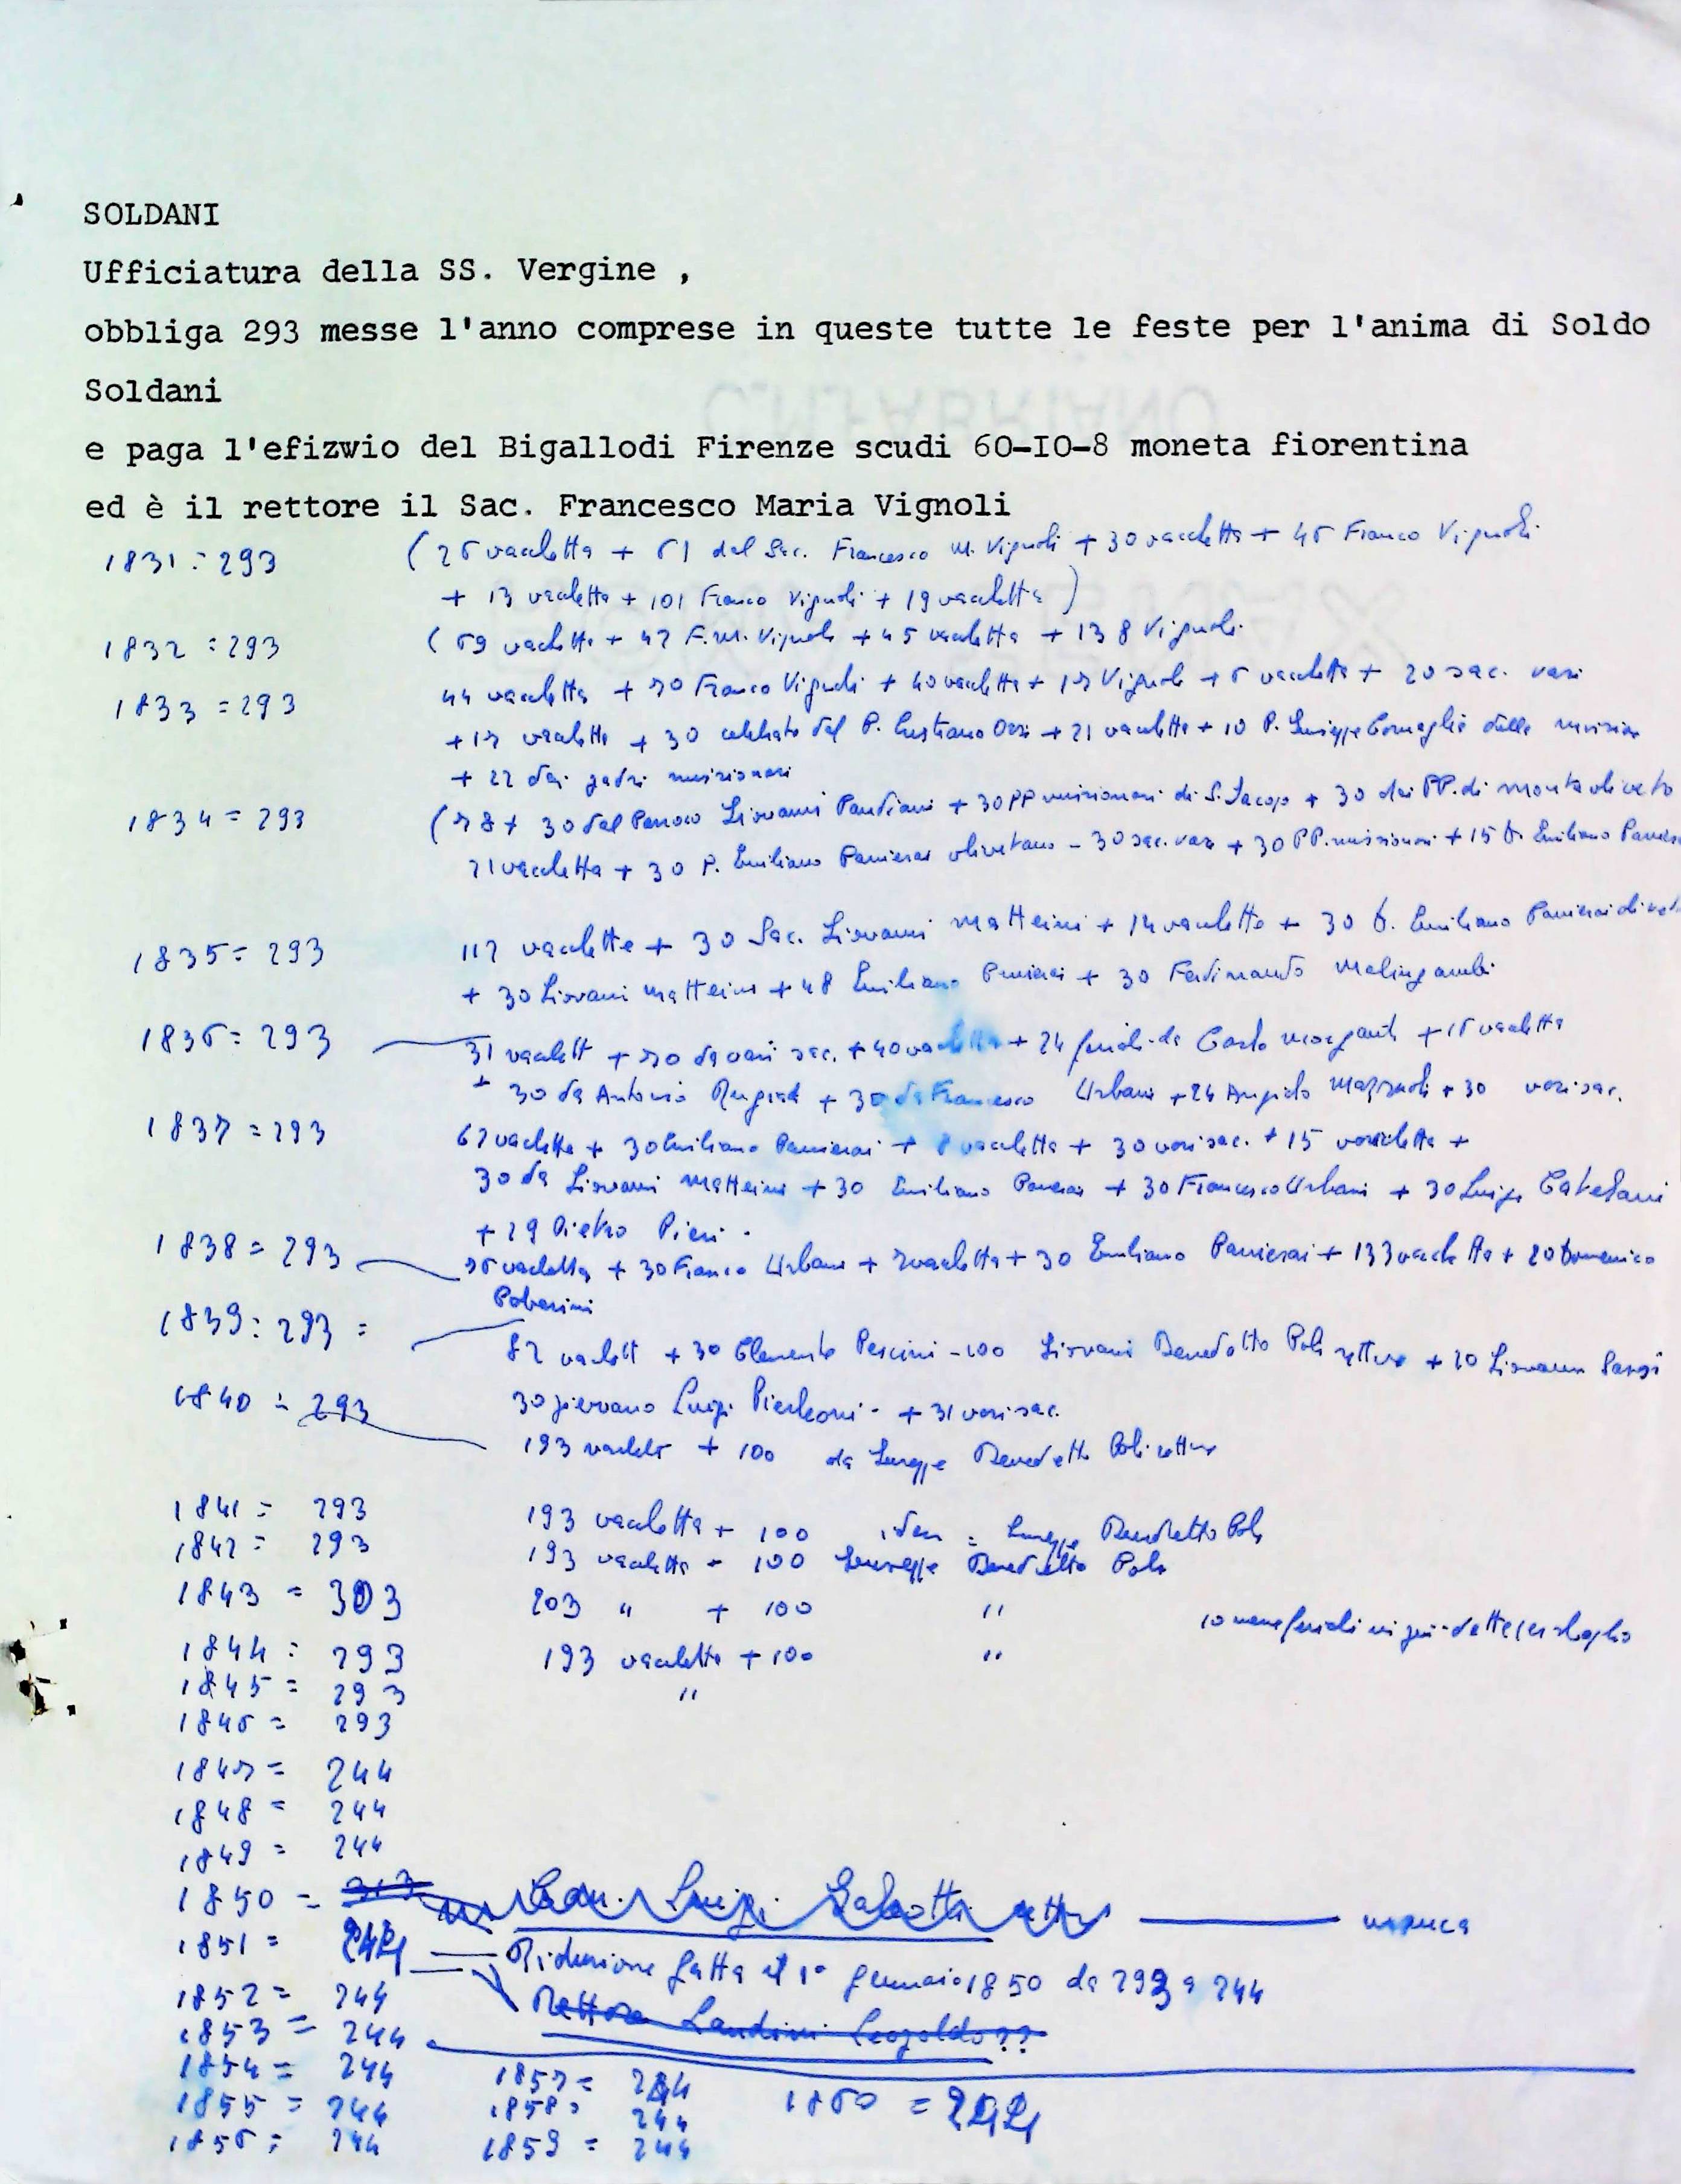 SOLDANI
Ufficiatura della SS. Vergine ,
obbliga 293 messe l'anno comprese in queste tutte le feste per l'anima di Soldo
Soldani
e paga l'efizwio del Bigallodi Firenze scudi 60-IO-8 moneta fiorentina
ed è il rettore il Sac. Francesco Maria Vignoli
1831 = 293 (26 vacchetta + 61 dal Sac. Francesco M. Vignoli + 30 vacchetta + 46 Franco Vignoli
+ 13 vacchetta + 101 Franco Vignoli + 19 vacchetta)
1832 = 293 (69 vacchetta + 42 F.M. Vignoli + 45 vacchetta + 138 Vignoli
1833 = 293 44 vacchetta + 70 Franco Vignoli + 40 vacchetta + 17 Vignoli + 6 vacchetta + 20 sac. vari
+ 17 vacchetta + 30 celebrate dal P. + 21 vacchetta + 10 P. Giuseppe Cornaglia delle missioni
+ 22 dai padri missionari
1834 = 293 (78 + 30 dal Parroco Giovanni Pandiani + 30 PP missionari di S. Jacopo + 30 dai PP. di Monte oliveto
21 vacchetta + 30 P. Emiliano Panierai olivetano - 30 sac. vari + 30 PP. missionari + 15 D. Emiliano
1835 = 293 112 vacchetta + 30 Sac. Giovanni Matteini + 14 vacchetta + 30 D. Emiliano Panierai
+ 30 Giovani Matteini + 48 Emiliano Panierai + 30 Ferdinando Malingambi
1836 = 293 31 vacchett + 70 da vari sac. + 40 vacchetta + 24 feriali da Carlo Morganti + 16 vacchetta
+ 30 da Antonio + 30 da Francesco Urbani + 24 Angiolo Mazzuoli + 30 vari sac.
1837 = 293 62 vacchetta + 30 Emiliano Panierai + 8 vacchetta + 30 vari sac. + 15 vacchetta +
30 da Giovanni Matteini + 30 Emiliano Panierai + 30 Francesco Urbani + 30 Luigi Catelani
+ 29 Pietro Pieri .
1838 = 293 76 vacchetta + 30 Franco Urbani + 2 vacchetta + 30 Emiliano Panierai + 133 vacchetta + 20 Domenico
Poberini
1839 = 293 = 82 vacchett + 30 Clemente Pescini - 100 Giovani Benedetto Poli rettore + 20 Giovanni
30 pievano Luigi Pierleoni - + 31 vari sac.
1840 = 293 193 vacchett + 100 da Giuseppe Benedetto Poli rettore
1841 = 293 193 vacchetta + 100 idem = Giuseppe Benedetto Poli
1842 = 293 193 vacchetta - 100 Giuseppe Benedetto Poli
1843 = 303 203 " + 100 " 10 messe feriali in più
1844 = 293 193 vacchetta + 100 "
1845 = 293 "
1846 = 293
1847 = 244
1848 = 244
1849 = 244
1850 = 313 Can. Luigi rettore manca
1851 = 244 Riduzione fatta il 1° gennaio 1850 da 293 a 244
1852 = 244 Rettore Landini Leopoldo ??
1853 = 244
1854 = 244 1857 = 244 1860 = 244
1855 = 244 1858 = 244
1856 = 244 1859 = 244